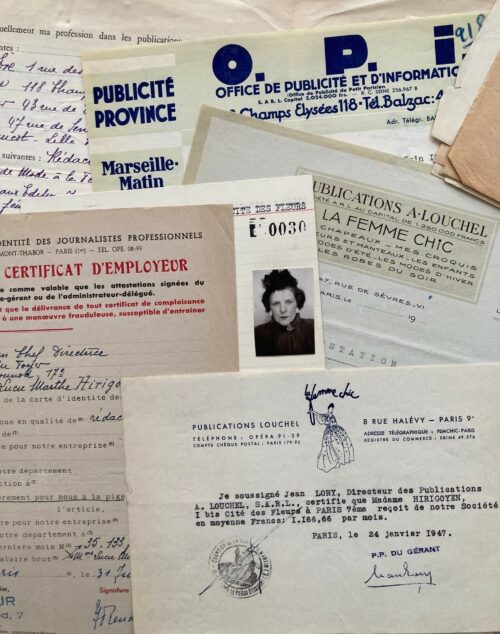 uellement ma profession dans les publication
antes :
1 rue des
118 Cham
93 rue de
47 rue de
Lille
suivantes : Rédac
de Mode à la
9/8
O. P. I.
PUBLICITÉ
PROVINCE
OFFICE DE PUBLICITÉ ET D'INFORMATIO
Office de Publicité du Petit Parisien
S. A. R. L. Capital 2.024.000 frs — R. C. SEINE 236.967 B
Champs Elysées 118 - Tél. Balzac: 4
Adr. Télégr. BA
Marseille-
Matin
PUBLICATIONS A. LOUCHEL
SOCIÉTÉ A R. L. AU CAPITAL DE 1.250.000 FRANCS
LA FEMME CHIC
CHAPEAUX - MES CROQUIS
LES ROBES DU SOIR
47, RUE DE SÈVRES - VI
PARIS, LE
19
STATION
CITÉ DES FLEURS
0030
IDENTITÉ DES JOURNALISTES PROFESSIONNELS
MONT-THABOR — PARIS (1er) — TEL. OPÉ 08-99
CERTIFICAT D'EMPLOYEUR
e comme valable que les attestations signées du
-gérant ou de l'administrateur-délégué.
t que la délivrance de tout certificat de complaisance
à une manœuvre frauduleuse, susceptible d'entraîner
Chef Directrice
17e
Lucie Marthe Hirigo
de la carte d'identité de
us en qualité de (2) rédac
re pour notre entreprise
tre département
ction à
èrement pour nous à la pige
l'article.
re pour notre entreprise
tre département à
ernier mois M (2) 35.133
laire brut (2)
31
Signature
la femme chic
PUBLICATIONS LOUCHEL
TÉLÉPHONE : OPÉRA 91-29
COMPTE CHÈQUE POSTAL : PARIS 179-92
8 RUE HALÉVY — PARIS 9e
ADRESSE TÉLÉGRAPHIQUE : FEMCHIC-PARIS
REGISTRE DU COMMERCE : SEINE 49.576
Je soussigné Jean LORY, Directeur des Publications
A. LOUCHEL, S.A.R.L., certifie que Madame HIRIGOYEN,
I bis Cité des Fleurs à PARIS 7ème reçoit de notre Société
en moyenne Francs: I.I66,66 par mois.
PARIS, le 24 janvier 1947.
P.P. DU GÉRANT